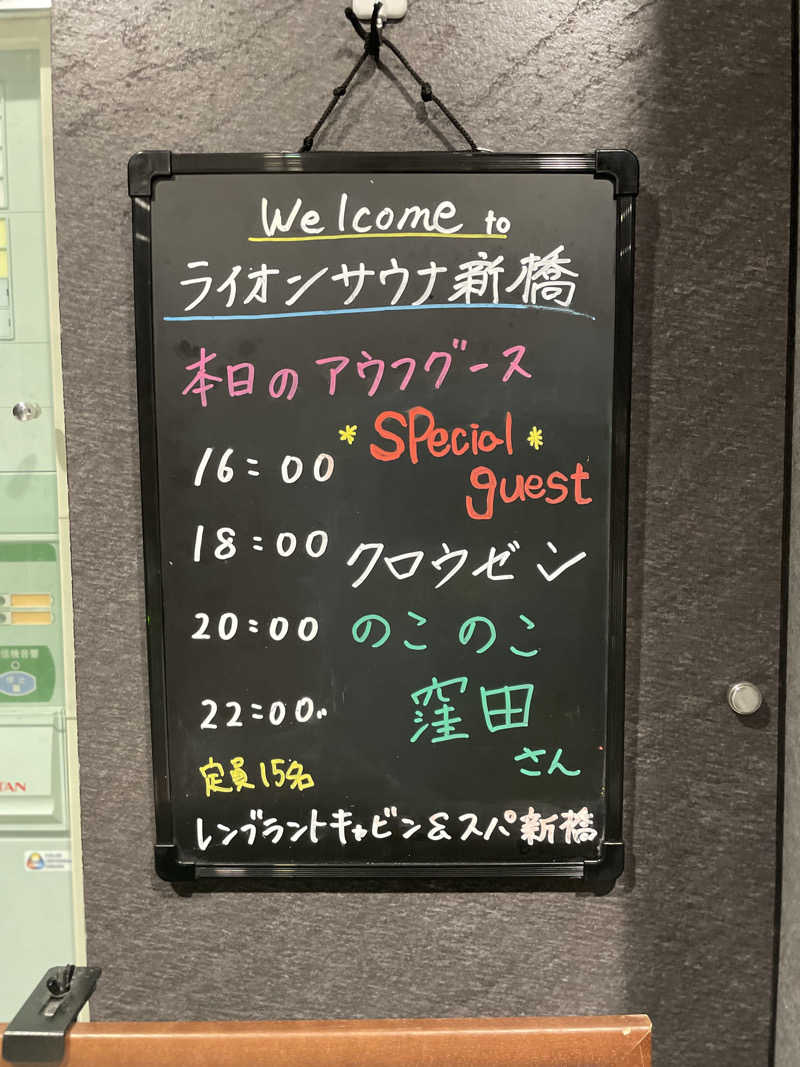 Welcome to
ライオンサウナ新橋
本日のアウフグース
*Special*
guest
16:00
18:00 クロウゼン
20:00 のこのこ
22:00
窪田
さん
定員15名
レンブラントキャビン&スパ新橋